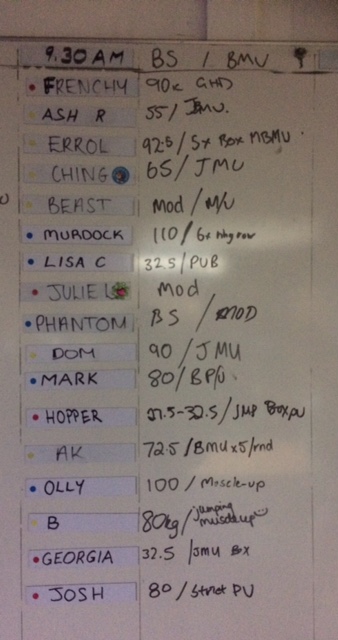 9.30 AM BS / BMU
FRENCHY 90k GHD
ASH R 55/ JMU.
ERROL 92.5/ 5x Box MBMU
CHING 65/ JMU
BEAST Mod / M/U
MURDOCK 110/ 6x
LISA C 32.5/PUB
JULIE L Mod
PHANTOM BS / MOD
DOM 90 / JMU
MARK 80/BP/U
HOPPER 27.5-32.5/JMP Box PU
AK 72.5/BMUx5/rnd
OLLY 100 / Muscle-up
B 80kg/ jumping muscle up
GEORGIA 32.5 /JMU Box
JOSH 80/ Strict PU